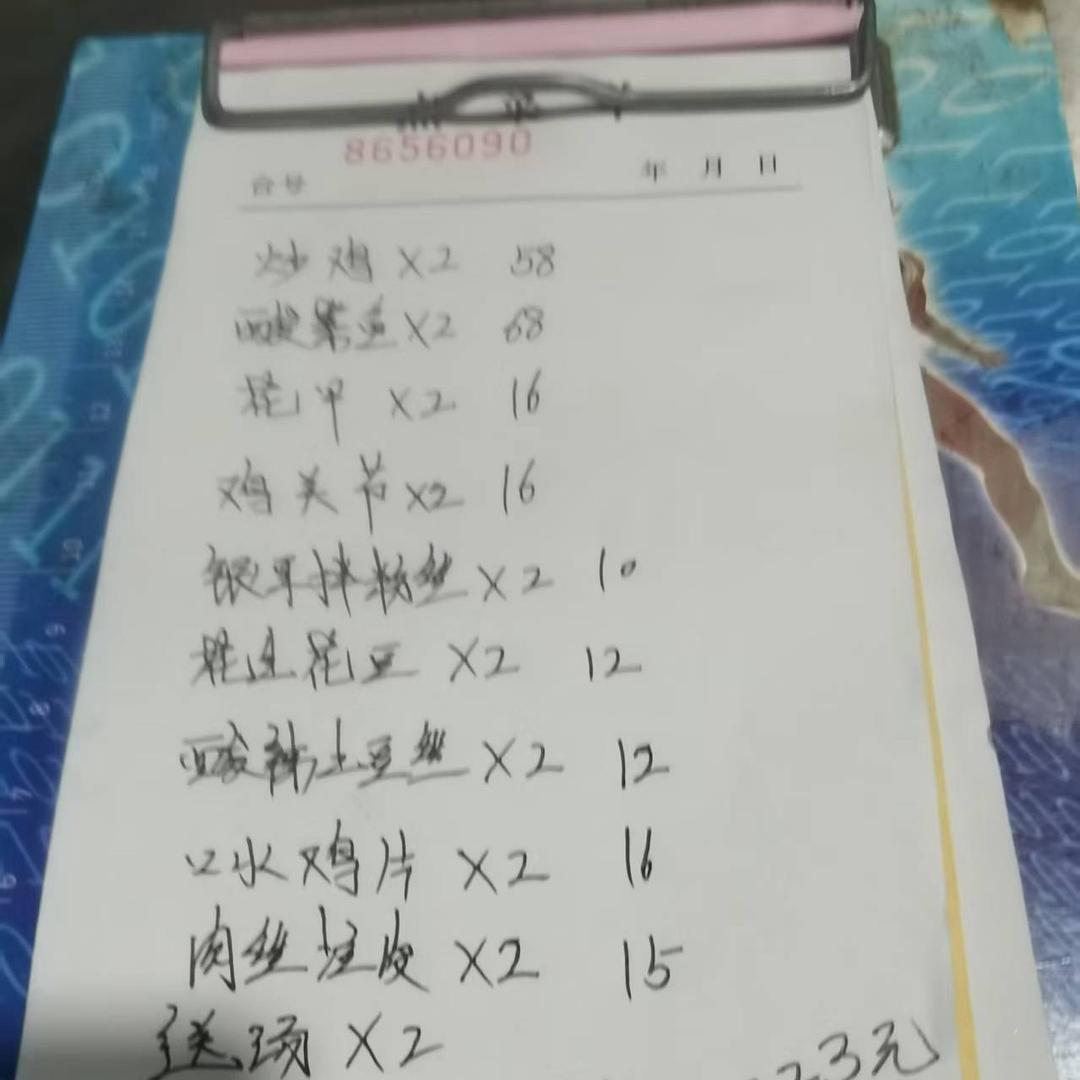 8656090
台号 年 月 日
炒鸡 X2 58
酸菜鱼 X2 68
花甲 X2 16
鸡关节 X2 16
银耳拌粉丝 X2 10
花生花豆 X2 12
酸辣土豆丝 X2 12
口水鸡片 X2 16
肉丝拉皮 X2 15
送汤 X2
23元